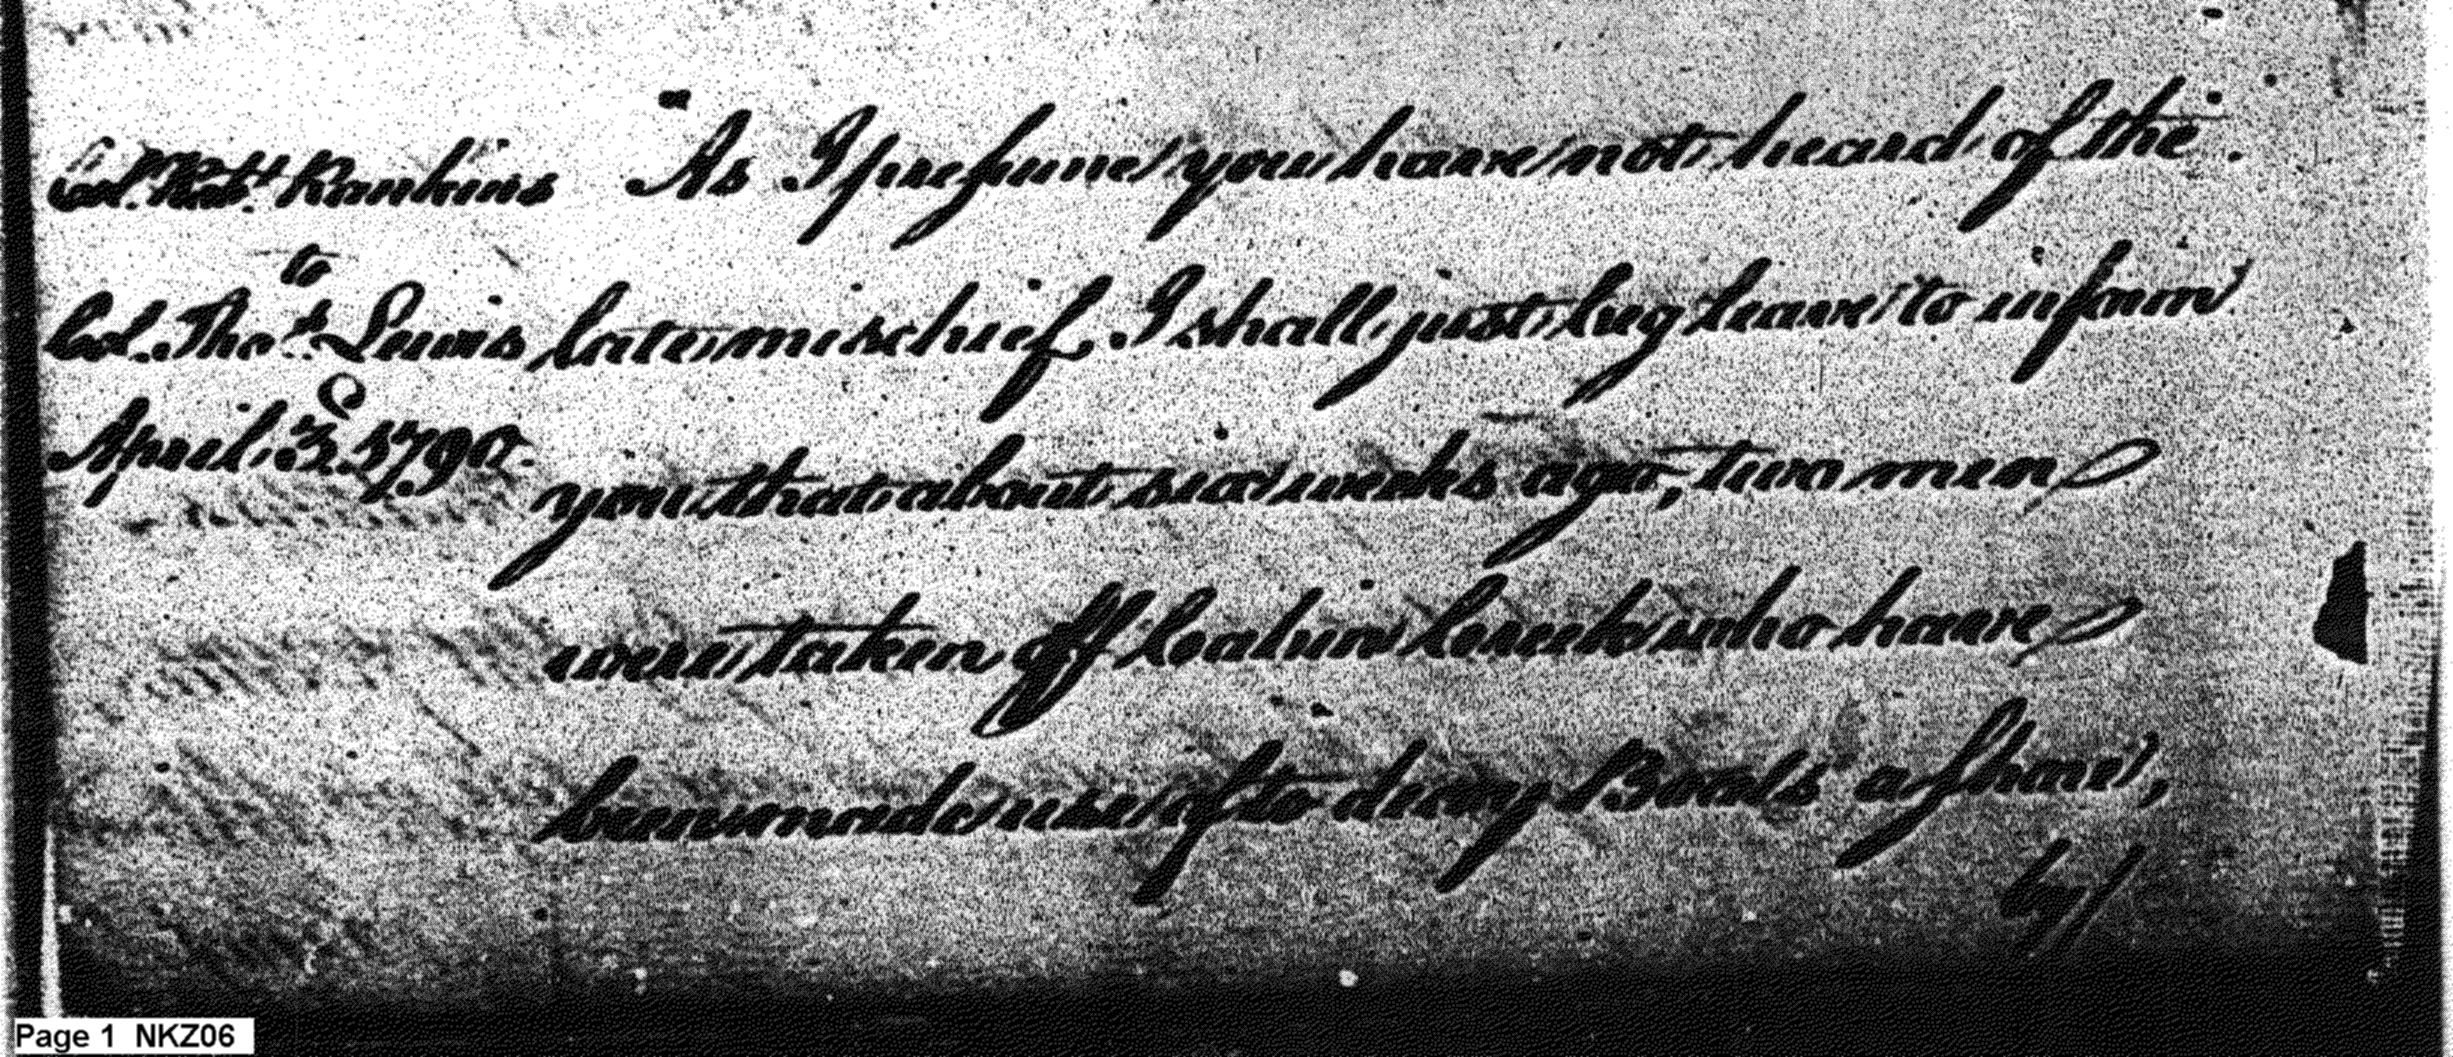 Col. Robt. Rankins
to
Col. Thos. Lewis
April 3. 1790.
As I presume you have not heard of the
late mischief. I shall just beg leave to inform
you that about six weeks ago, two men
were taken off Cabin Creek who have
been made use of to decoy Boats ashore,
by
Page 1 NKZ06